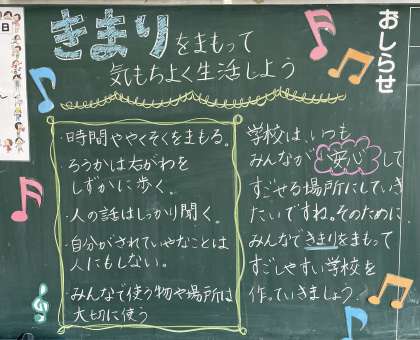 おしらせ
きまりをまもって
気もちよく生活しよう
・時間ややくそくをまもる。
・ろうかは右がわを
しずかに歩く。
・人の話はしっかり聞く。
・自分がされていやなことは
人にもしない。
・みんなで使う物や場所は
大切に使う
学校は、いつも
みんなが安心して
すごせる場所にしていき
たいですね。そのために
みんなできまりをまもって
すごしやすい学校を
作っていきましょう。
日